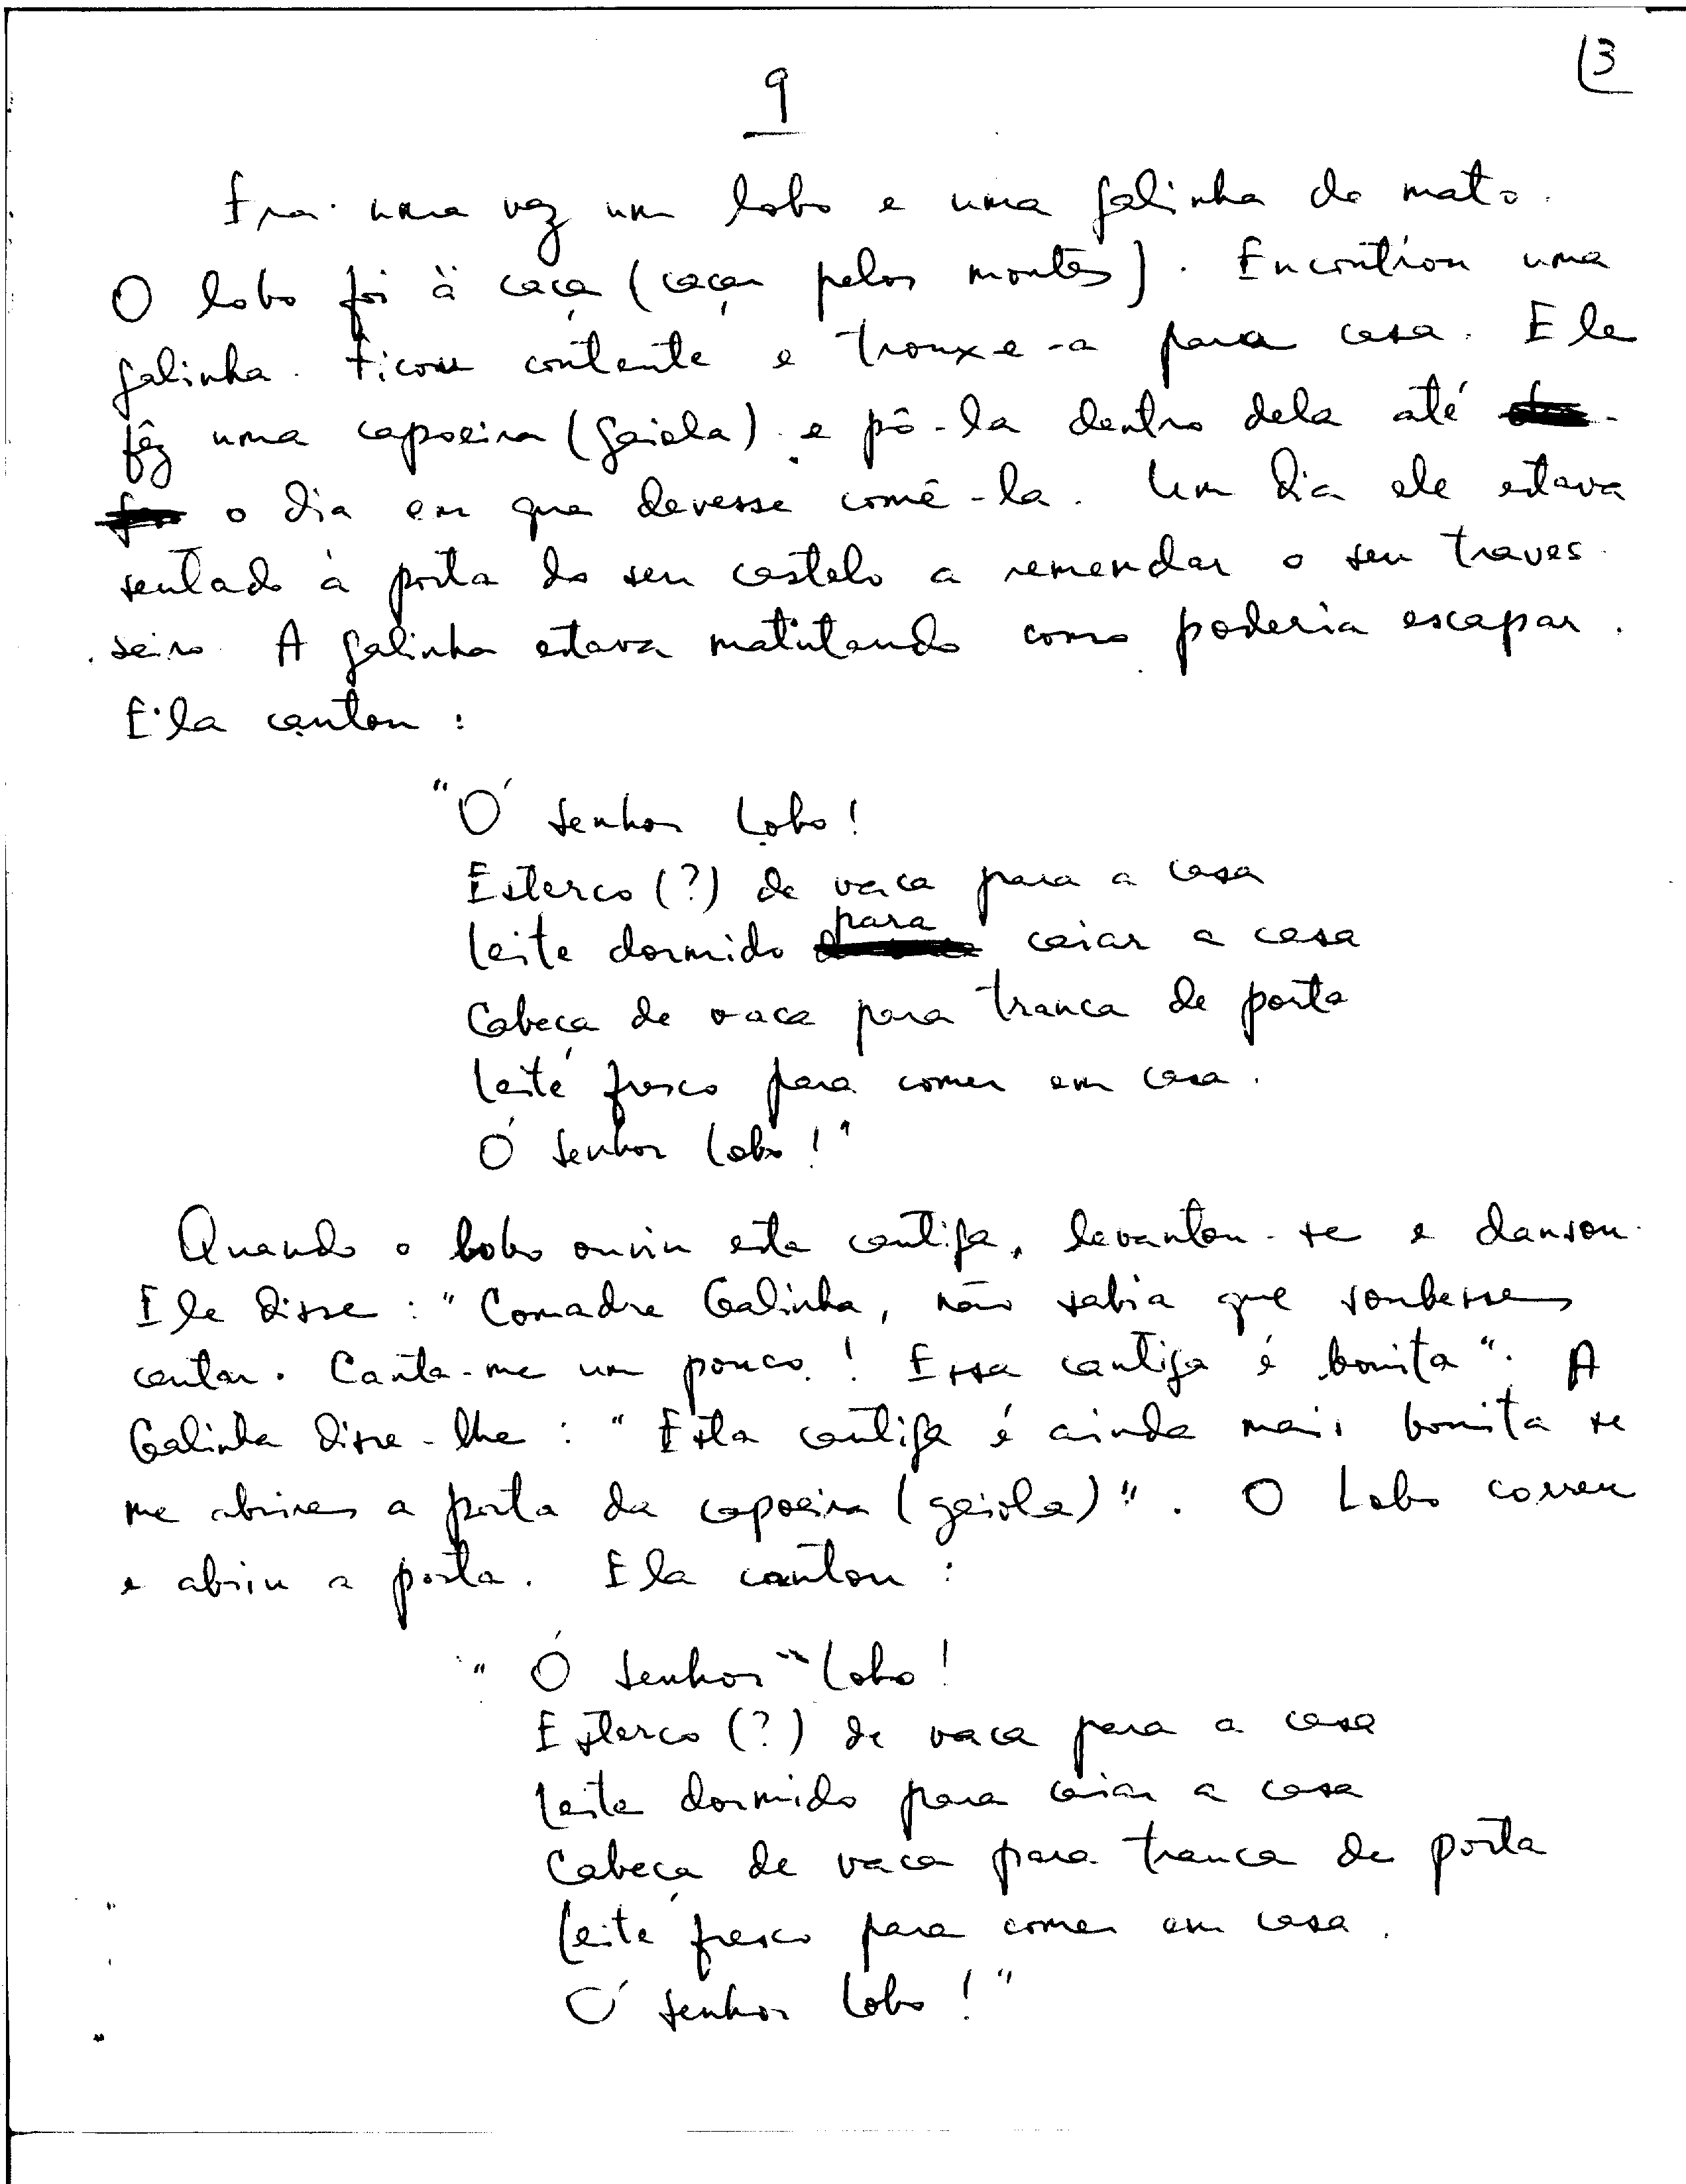 13
9
Era uma vez um lobo e uma galinha do mato.
O lobo foi à caça (caçar pelos montes). Encontrou uma
galinha. Ficou contente e trouxe-a para casa. Ele
fêz uma capoeira (gaiola) e pô-la dentro dela até
o dia em que devesse comê-la. Um dia ele estava
sentado à porta do seu castelo a remendar o seu traves-
seiro. A galinha estava matutando como poderia escapar.
Ela cantou:
"Ó Senhor Lobo!
Esterco (?) de vaca para a casa
Leite dormido para caiar a casa
Cabeça de vaca para tranca de porta
Leite fresco para comer em casa.
Ó Senhor Lobo!"
Quando o lobo ouviu esta cantiga, levantou-se e dansou.
Ele disse: "Comadre Galinha, não sabia que soubesses
cantar. Canta-me um pouco! Essa cantiga é bonita". A
Galinha disse-lhe: "Esta cantiga é ainda mais bonita se
me abrires a porta da capoeira (gaiola)". O Lobo correu
e abriu a porta. Ela cantou:
"Ó Senhor Lobo!
Esterco (?) de vaca para a casa
Leite dormido para caiar a casa
Cabeça de vaca para tranca de porta
Leite fresco para comer em casa.
Ó Senhor Lobo!"